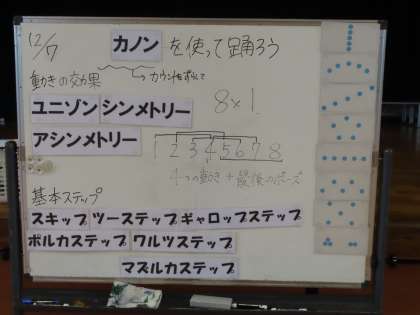 12/7
カノン を使って踊ろう
動きの効果 カウントをずらして
ユニゾン シンメトリー 8×1
アシンメトリー
1 2 3 4 5 6 7 8
4つの動き + 最後のポーズ
基本ステップ
スキップ ツーステップ ギャロップステップ
ポルカステップ ワルツステップ
マズルカステップ